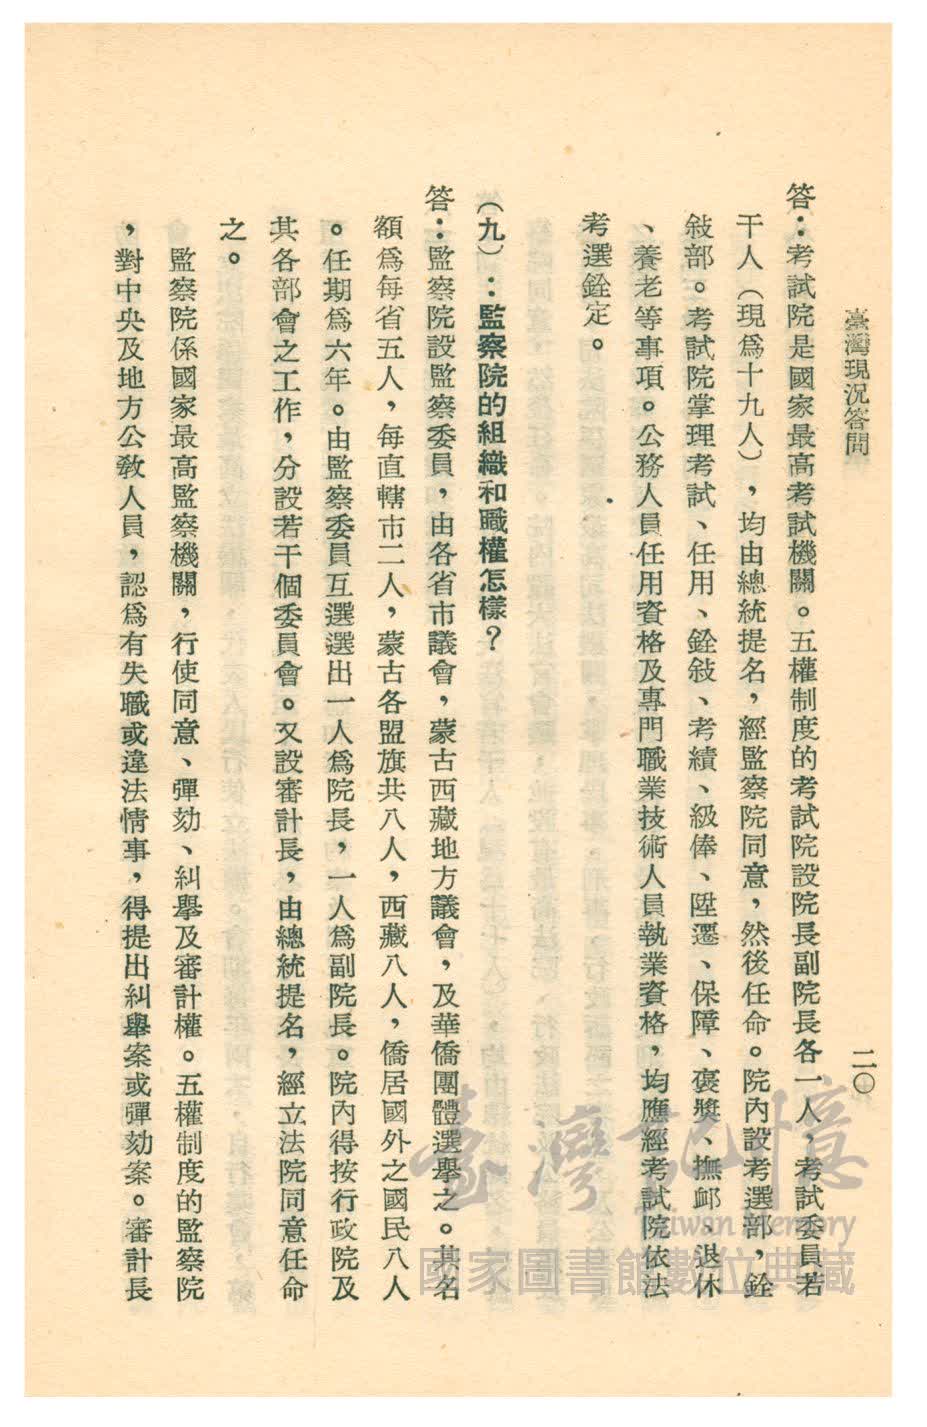 臺灣現況答問
二〇
答：考試院是國家最高考試機關。五權制度的考試院設院長副院長各一人，考試委員若
干人（現為十九人），均由總統提名，經監察院同意，然後任命。院內設考選部，銓
敍部。考試院掌理考試、任用、銓敍、考績、級俸、陞遷、保障、褒獎、撫卹、退休
、養老等事項。公務人員任用資格及專門職業技術人員執業資格，均應經考試院依法
考選銓定。
（九）：監察院的組織和職權怎樣？
答：監察院設監察委員，由各省市議會，蒙古西藏地方議會，及華僑團體選舉之。其名
額爲每省五人，每直轄市二人，蒙古各盟旗共八人，西藏八人，僑居國外之國民八人
。任期爲六年。由監察委員互選選出一人爲院長，一人爲副院長。院內得按行政院及
其各部會之工作，分設若干個委員會。又設審計長，由總統提名，經立法院同意任命
之。
監察院係國家最高監察機關，行使同意、彈劾、糾舉及審計權。五權制度的監察院
，對中央及地方公教人員，認爲有失職或違法情事，得提出糾舉案或彈劾案。審計長
臺灣記憶
Taiwan Memory
國家圖書館數位典藏